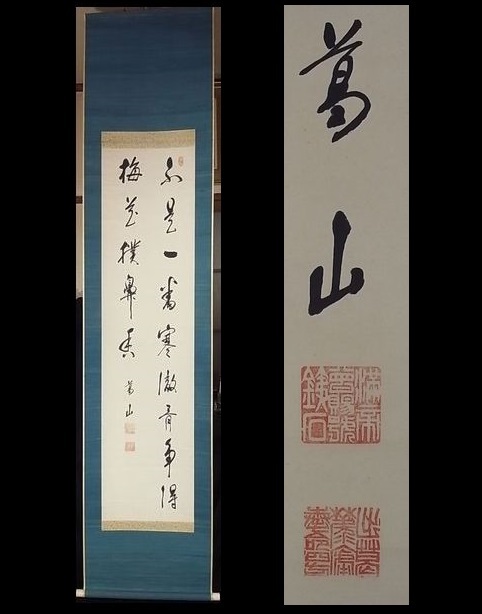 不是一番寒徹骨争得
梅花撲鼻香
葛山
葛山